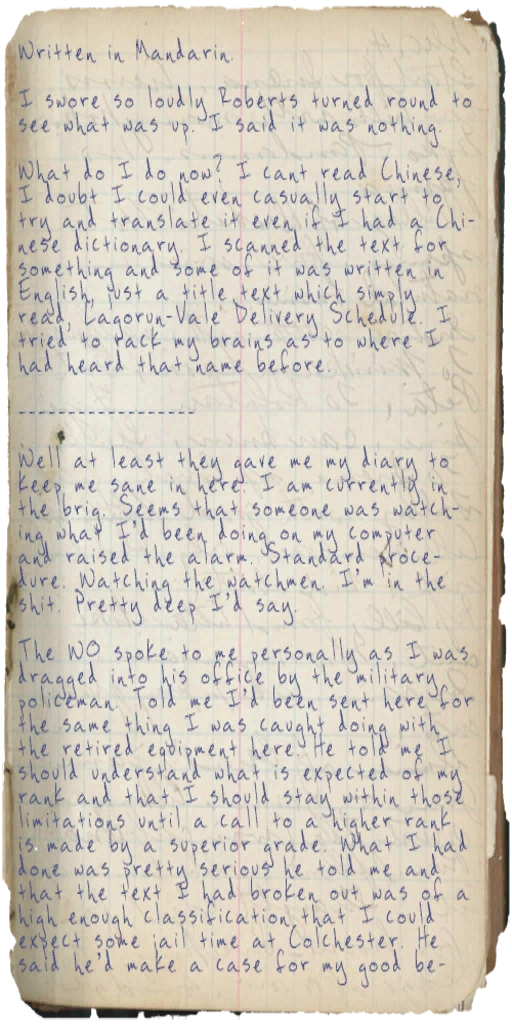 Written in Mandarin.
I swore so loudly Roberts turned round to
see what was up. I said it was nothing.
What do I do now? I cant read Chinese,
I doubt I could even casually start to
try and translate it even if I had a Chi-
nese dictionary. I scanned the text for
something and some of it was written in
English, just a title text which simply
read, 'Lagorun-Vale Delivery Schedule'. I
tried to rack my brains as to where I
had heard that name before.
--------------------
Well at least they gave me my diary to
keep me sane in here. I am currently in
the brig. Seems that someone was watch-
ing what I'd been doing on my computer
and raised the alarm. Standard proce-
dure. Watching the watchmen. I'm in the
shit. Pretty deep I'd say.
The WO spoke to me personally as I was
dragged into his office by the military
policeman. Told me I'd been sent here for
the same thing I was caught doing with
the retired equipment here. He told me I
should understand what is expected of my
rank and that I should stay within those
limitations until a call to a higher rank
is made by a superior grade. What I had
done was pretty serious he told me and
that the text I had broken out was of a
high enough classification that I could
expect some jail time at Colchester. He
said he'd make a case for my good be-